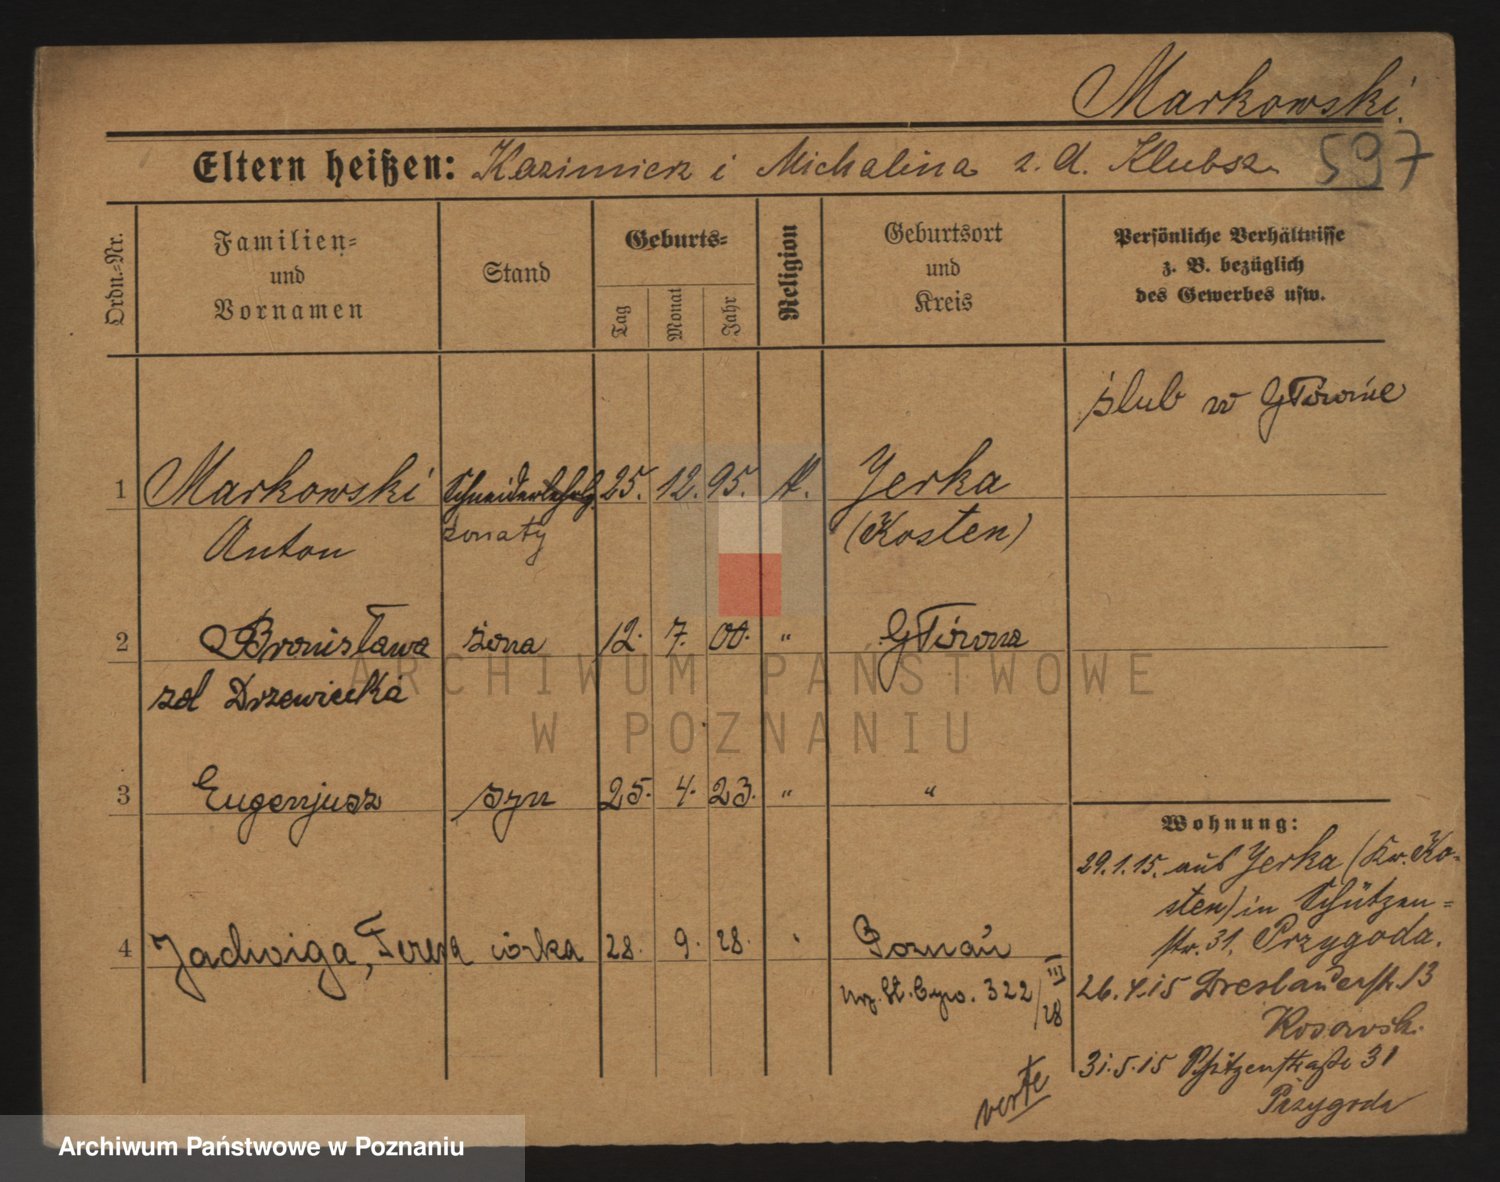 Markowski.
597
Eltern heißen: Kazimierz i Michalina z. d. Klubsz
Ordn.-Nr.
Familien-
und
Vornamen
Stand
Geburts-
Tag
Monat
Jahr
Religion
Geburtsort
und
Kreis
Persönliche Verhältnisse
z. B. bezüglich
des Gewerbes usw.
ślub w Głównie
1 Markowski Schneiderlehrlg. 25. 12. 95. K. Jerka
Anton żonaty (Kosten)
2 Bronisława żona 12. 7. 00. " Główna
zd Drzewiecka
3 Eugenjusz syn 25. 4. 23. " "
4 Jadwiga, Teresa córka 28. 9. 28. Poznań
Urz. St. Cyw. 322/III 28
Wohnung:
29.1.15. aus Jerka (Kr. Ko-
sten) in Schützen-
str. 31. Przygoda.
26.4.15 Breslauerstr. 13
Kosowsk.
31.5.15 Schützenstraße 31
Przygoda
verte
ARCHIWUM PAŃSTWOWE
W POZNANIU
Archiwum Państwowe w Poznaniu